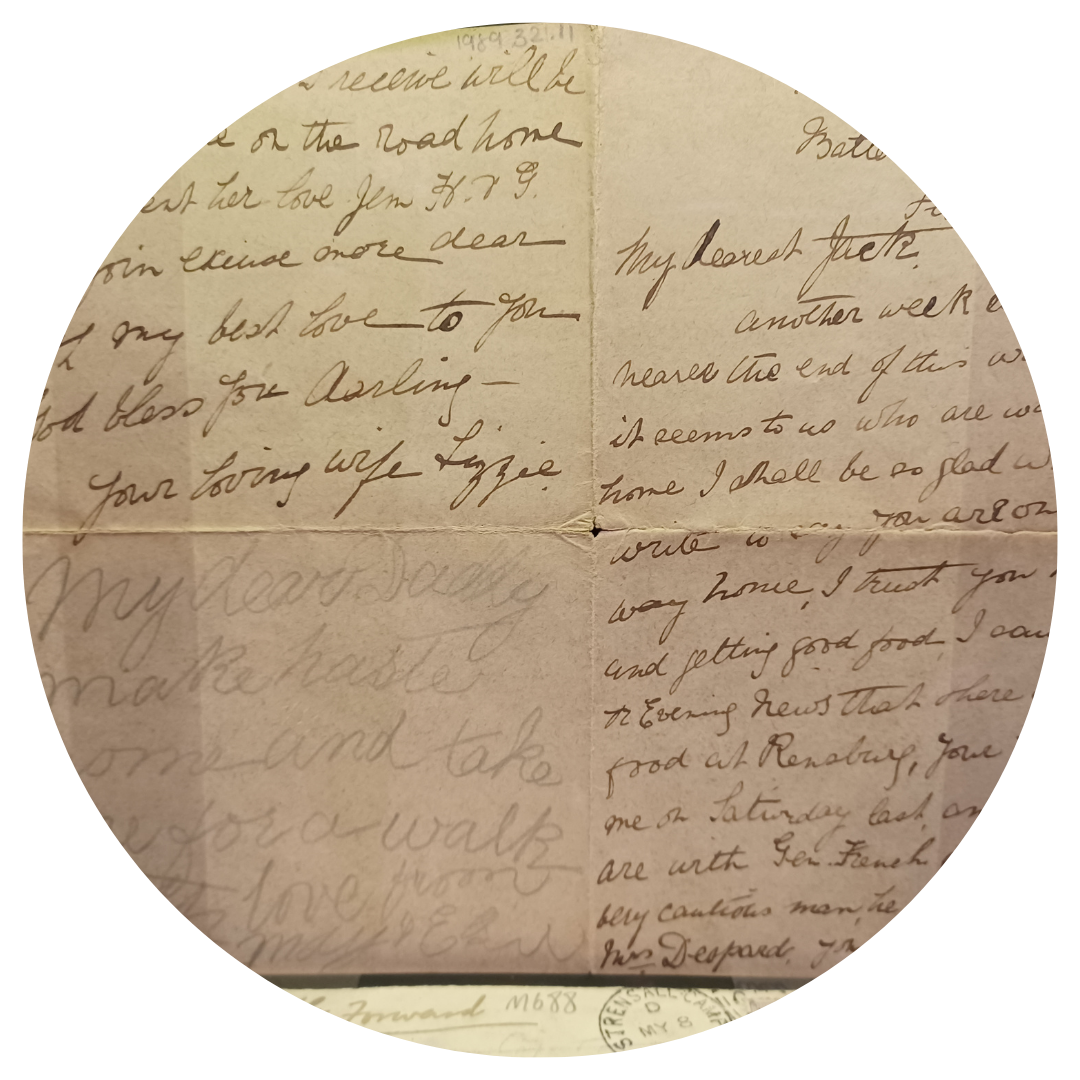 1989.321.11
receive will be
on the road home
her love Jem H. & G.
join excuse more dear
my best love to you
God bless you darling –
Your loving wife Lizzie.
My dear Daddy
make haste
home and take
for a walk
love from
My dearest Jack.
another week
nearer the end of this
it seems to us who are
home I shall be so glad
write to say you are on
way home, I trust you
and getting good food, I saw
Evening News that there
food at Rensburg, your
me on Saturday last, an
are with Gen. French
very cautious man, he
Mrs Despard.
Forward
M688
STRENSALL CAMP
D
MY 8